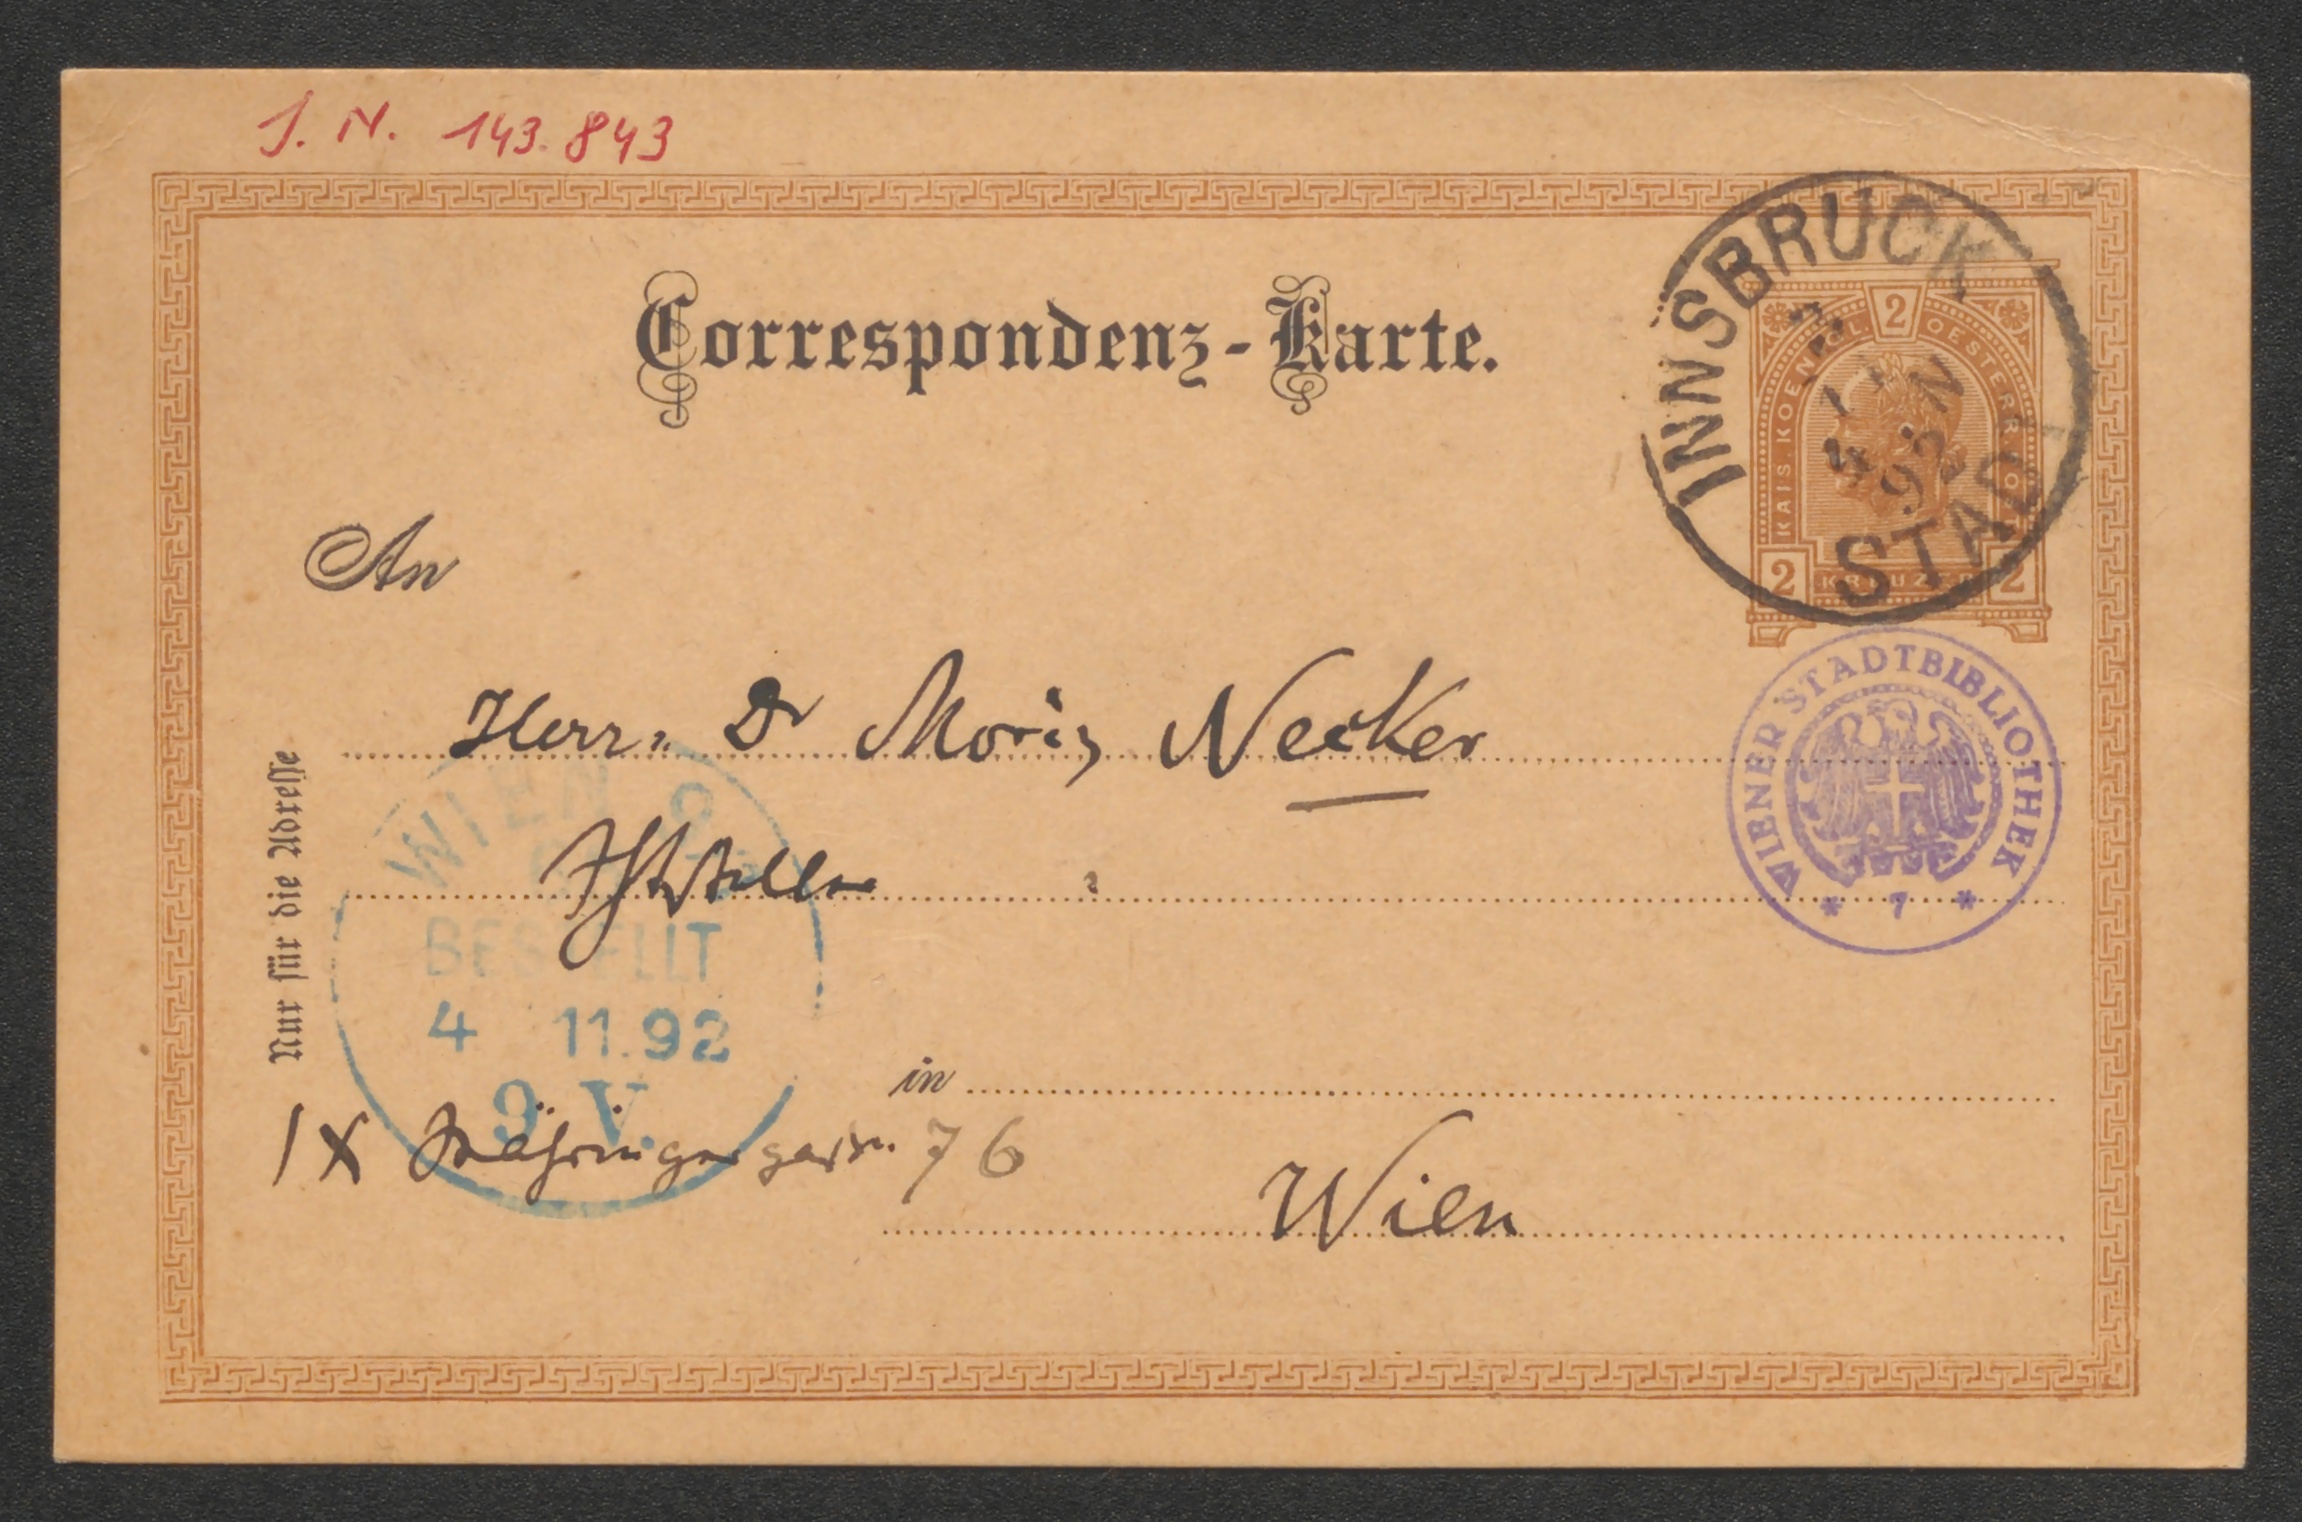 J. N. 143.843
Correspondenz-Karte.
INNSBRUCK
STADT
92
2
KAIS. KOENIGL. OESTERR.
2 KREUZER 2
An
Herrn Dr Moriz Necker
WIENER STADTBIBLIOTHEK
* 7 *
Nur für die Adresse
WIEN 9
BESTELLT
4 11.92
9.V.
in
IX Währingergasse 76
Wien